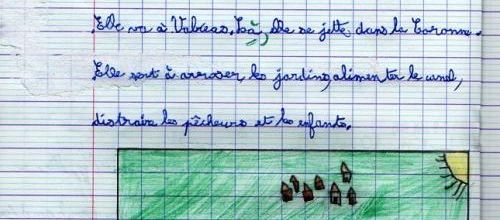 Elle va à Valréas. Là, elle se jette dans la Coronne.
Elle sert à arroser les jardins, alimenter le canal,
distraire les pêcheurs et les enfants.